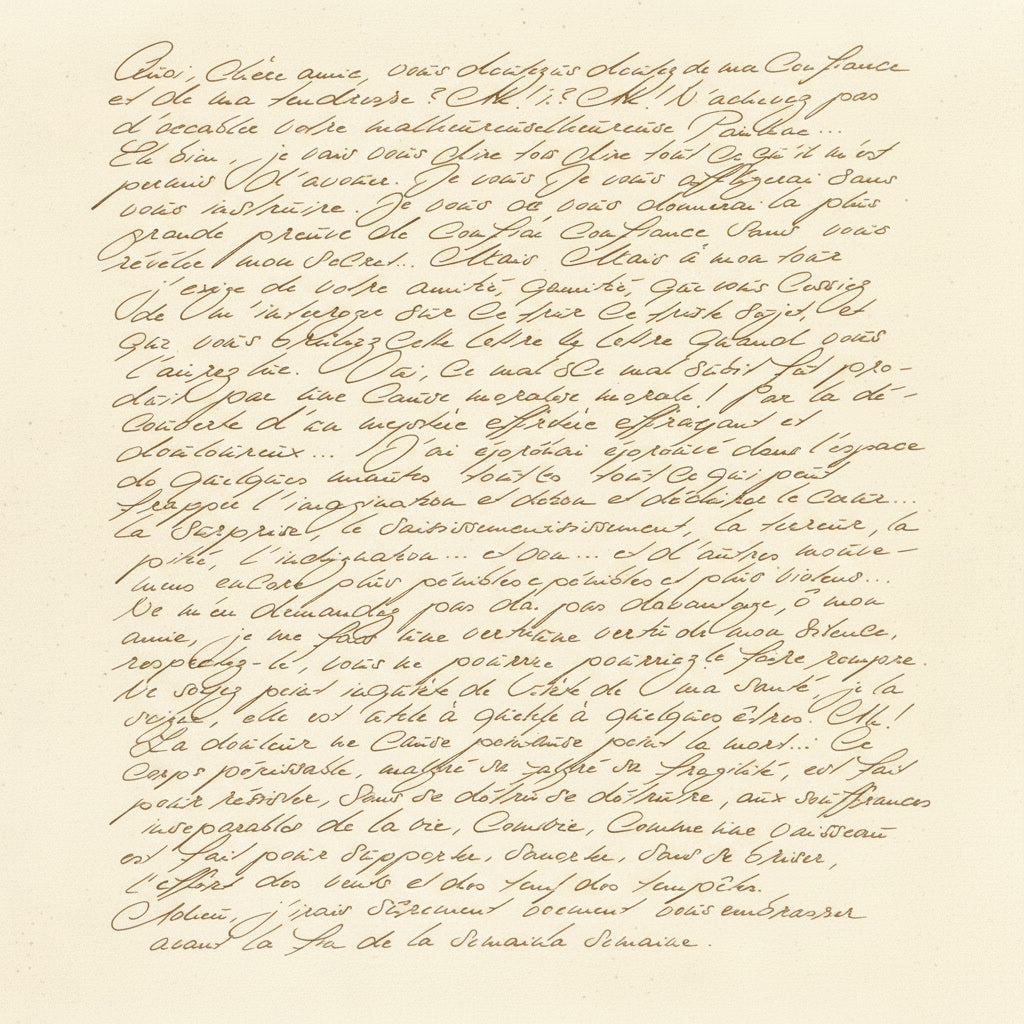 Quoi, chère amie, vous doutezus doutez de ma confiance
et de ma tendresse ? Ah ! i ? Ah ! N'achevez pas
d'accabler votre malheureuselheureuse Pauline...
Eh bien, je vais vous dire tos dire tout ce qu'il m'est
permis d'avouer. Je vous Je vous affligerai sans
vous instruire. Je vous de vous donnerai la plus
grande preuve de confian confiance sans vous
révéler mon secret... Mais Mais à mon tour
j'exige de votre amitié, qamitié, que vous cessiez
de m'interroger sur ce trur ce triste sujet, et
que vous brûliez cette lettre le lettre quand vous
l'aurez lue. Oui, ce mal sce mal subit fut pro-
duit par une cause moralese morale ! Par la dé-
couverte d'un mystère effrère effrayant et
douloureux... J'ai éprouvai éprouvé dans l'espace
de quelques minutes toutes tout ce qui peut
frapper l'imagination et décon et déchirer le cœur...
la surprise, le saisissementississement, la terreur, la
pitié, l'indignation... et don... et d'autres mouve-
mens encore plus péniblese pénibles et plus violens...
Ne m'en demandez pas da. pas davantage, ô mon
amie, je me fais une vertuune vertu de mon silence,
respectez-le, vous ne pourrie pourriez le faire rompre.
Ne soyez point inquiète de l'iète de ma santé, je la
soigne, elle est utile à quelqe à quelques êtres. Ah !
La douleur ne cause pointause point la mort... Ce
corps périssable, malgré sa algré sa fragilité, est fait
pour résister, sans se détru se détruire, aux souffrances
inséparables de la vie, comvie, comme une vaisseau
est fait pour supporter, sanorter, sans se briser,
l'effort des vents et des temf des tempêtes.
Adieu, j'irais sûrement vcement vous embrasser
avant la fin de la semaina semaine.